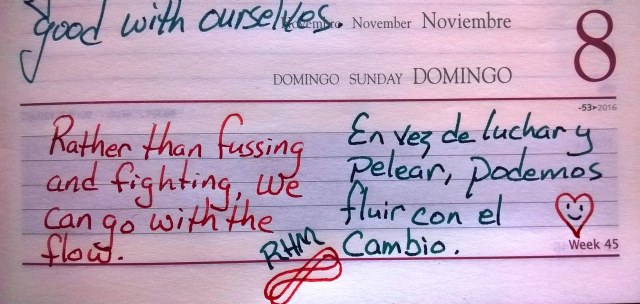 good with ourselves.
Novembro November Noviembre
8
DOMINGO SUNDAY DOMINGO
-53>2016
Rather than fussing
and fighting, we
can go with the
flow.
En vez de luchar y
pelear, podemos
fluir con el
Cambio.
RHM
Week 45